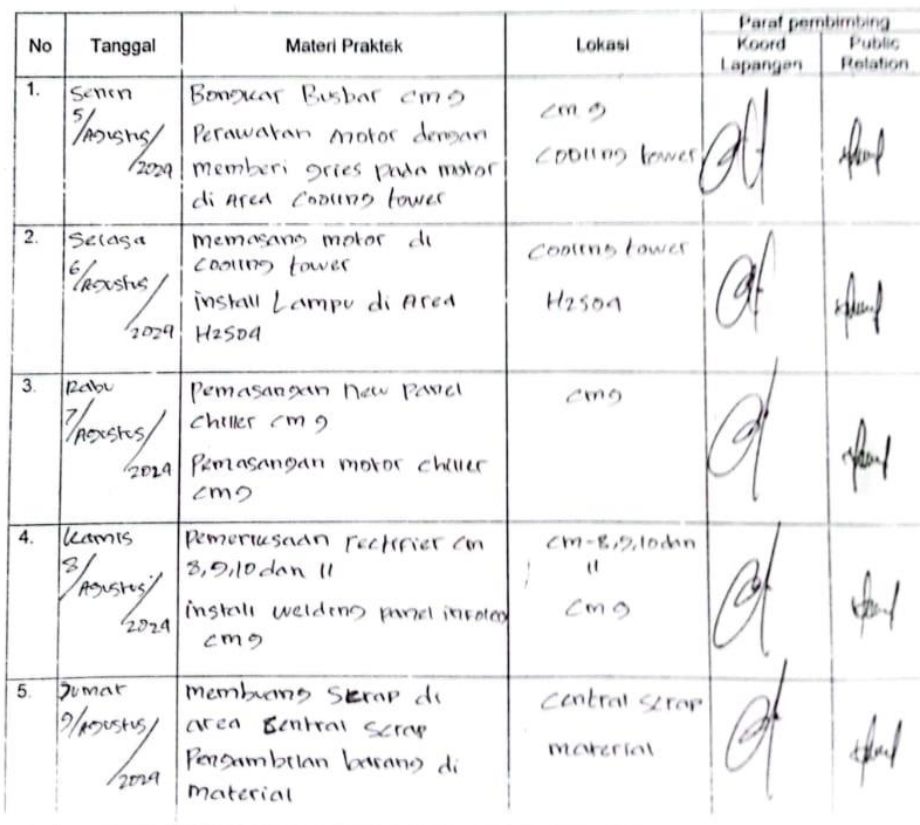 Paraf pembimbing
No Tanggal Materi Praktek Lokasi Koord Lapangan Public Relation
1. Senin
5/Agustus/2024
Bongkar Busbar cm 9
Perawatan motor dengan
memberi gries pada motor
di Area Cooling tower
cm 9
cooling tower
2. Selasa
6/Agustus/2024
memasang motor di
cooling tower
install Lampu di Area
H2SO4
Cooling tower
H2SO4
3. Rabu
7/Agustus/2024
Pemasangan new Panel
chiller cm 9
Pemasangan motor chiller
cm 9
cm 9
4. Kamis
8/Agustus/2024
Pemeriksaan rectifier cm
8,9,10 dan 11
install welding panel
cm 9
cm-8,9,10 dan
11
cm 9
5. Jumat
9/Agustus/2024
membuang Skrap di
area Sentral scrap
Pengambilan barang di
material
central scrap
material